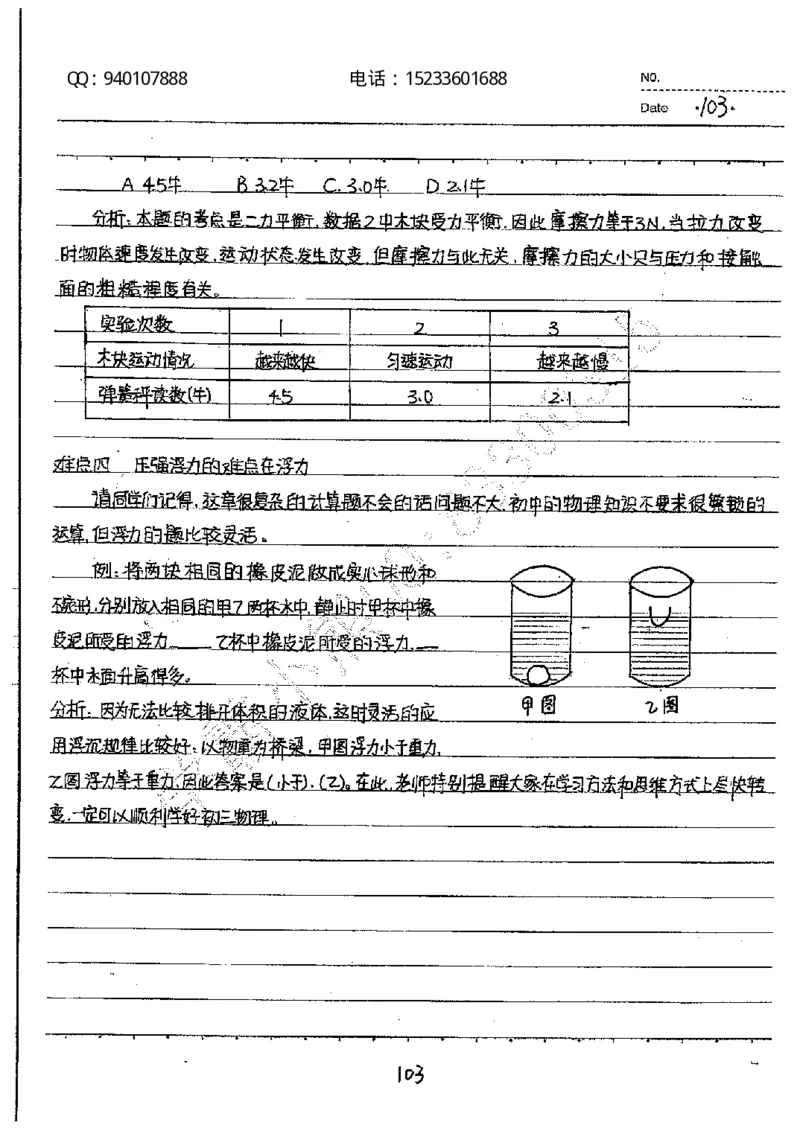 QQ：940107888 电话：15233601688 NO.
Date ·103·
A 4.5牛 B 3.2牛 C. 3.0牛 D 2.1牛
分析：本题的考点是二力平衡，数据2中木块受力平衡，因此摩擦力等于3N，当拉力改变
时物体速度发生改变，运动状态发生改变，但摩擦力与此无关，摩擦力的大小只与压力和接触
面的粗糙程度有关。
实验次数 1 2 3
木块运动情况 越来越快 匀速运动 越来越慢
弹簧秤读数(牛) 4.5 3.0 2.1
难点四 压强浮力的难点在浮力
请同学们记得，这章很复杂的计算题不会的话问题不大，初中的物理知识不要求很繁锁的
运算，但浮力的题比较灵活。
例：将两块相同的橡皮泥做成实心球形和
碗形，分别放入相同的甲乙两杯水中，静止时甲杯中橡
皮泥所受的浮力____乙杯中橡皮泥所受的浮力，__
杯中水面升高得多。
甲图 乙图
分析：因为无法比较排开体积的液体，这时灵活的应
用浮沉规律比较好：以物重为桥梁，甲图浮力小于重力，
乙图浮力等于重力，因此答案是(小于)．(乙)。在此，老师特别提醒大家在学习方法和思维方式上尽快转
变，一定可以顺利学好初三物理。
103